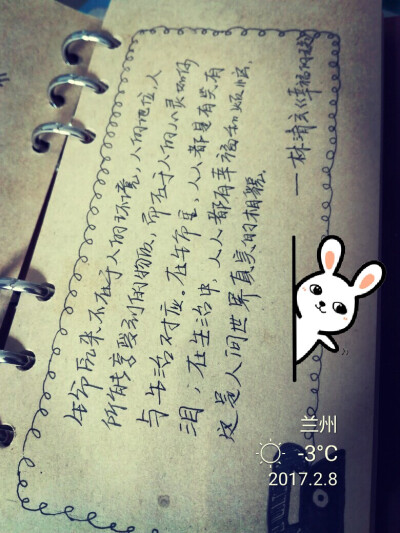 生命原来不在于人的环境,人的地位,人
所能享受到的物质,而在于人的心灵如何
与生活对应。在生命里,人人都是有笑有
泪;在生活中,人人都有幸福和烦恼。
这是人间世界真实的相貌。
——林清玄《幸福的开关》
兰州
-3°C
2017.2.8